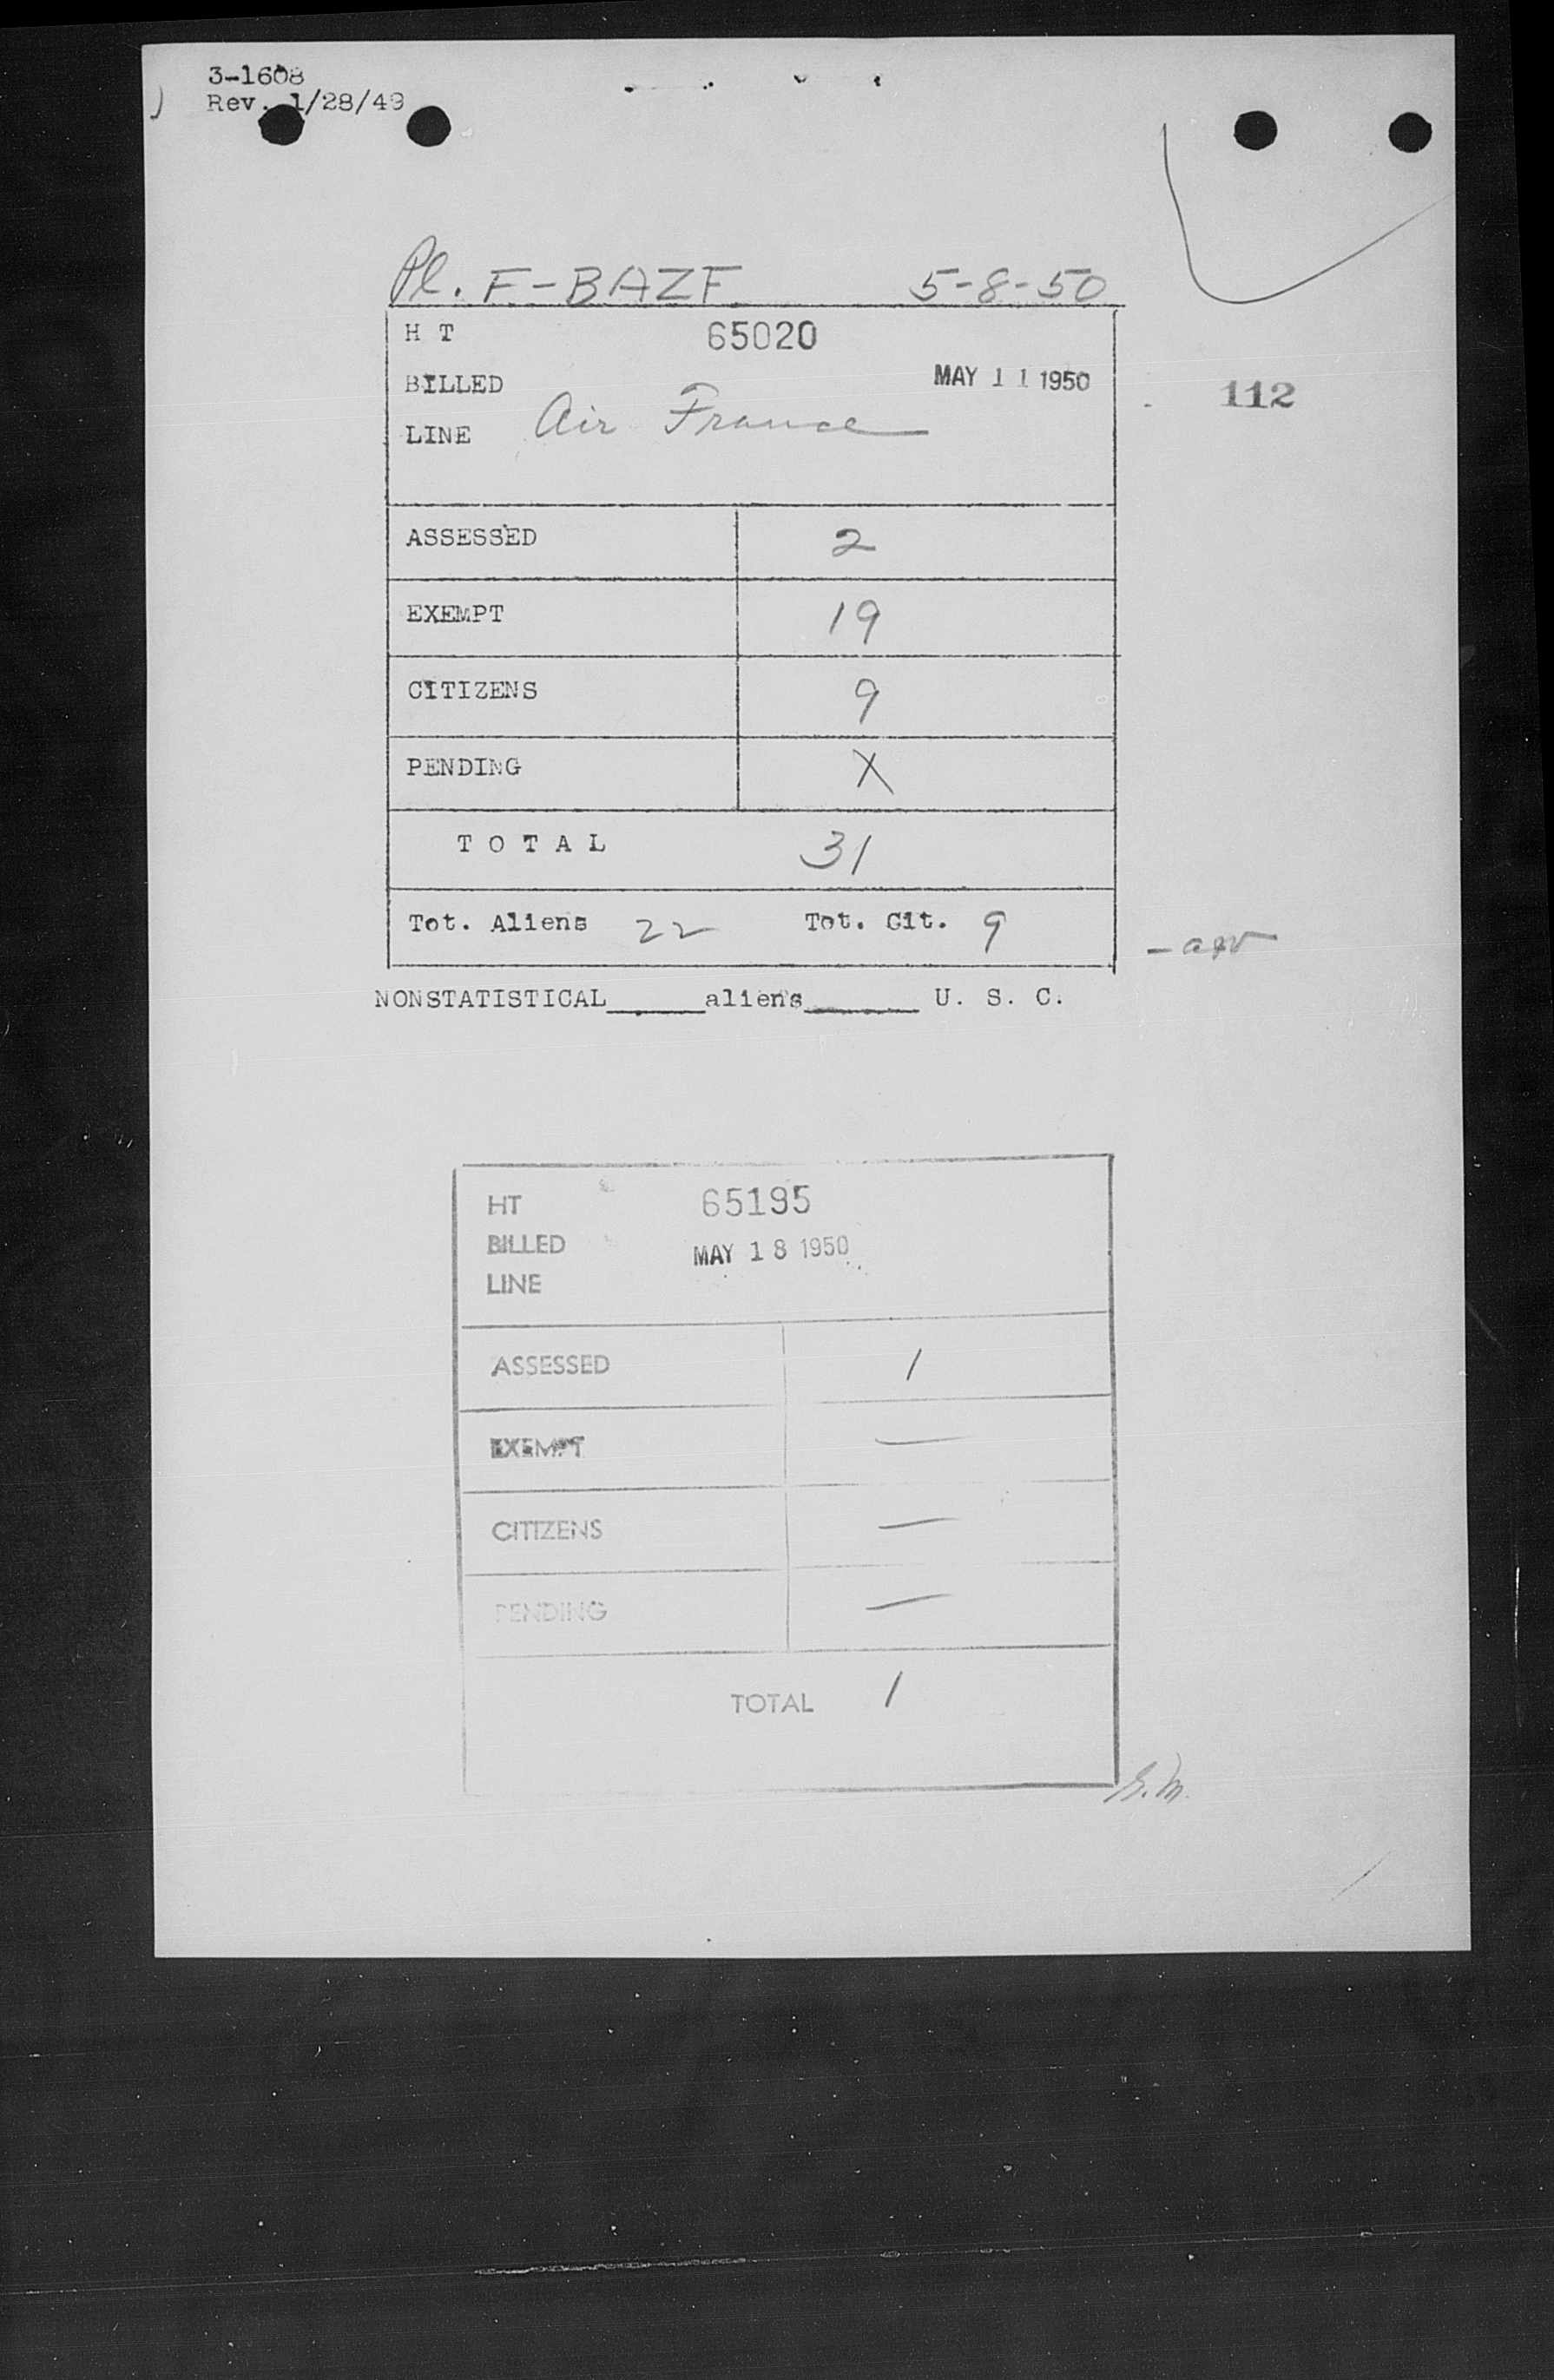 3-1608
Rev. 1/28/49
Pl. F-BAZF 5-8-50
H T 65020
BILLED MAY 11 1950
112
LINE Air France
ASSESSED 2
EXEMPT 19
CITIZENS 9
PENDING X
TOTAL 31
Tot. Aliens 22 Tot. Cit. 9
NONSTATISTICAL______aliens_______ U. S. C.
HT 65195
BILLED MAY 18 1950
LINE
ASSESSED 1
EXEMPT —
CITIZENS —
PENDING —
TOTAL 1